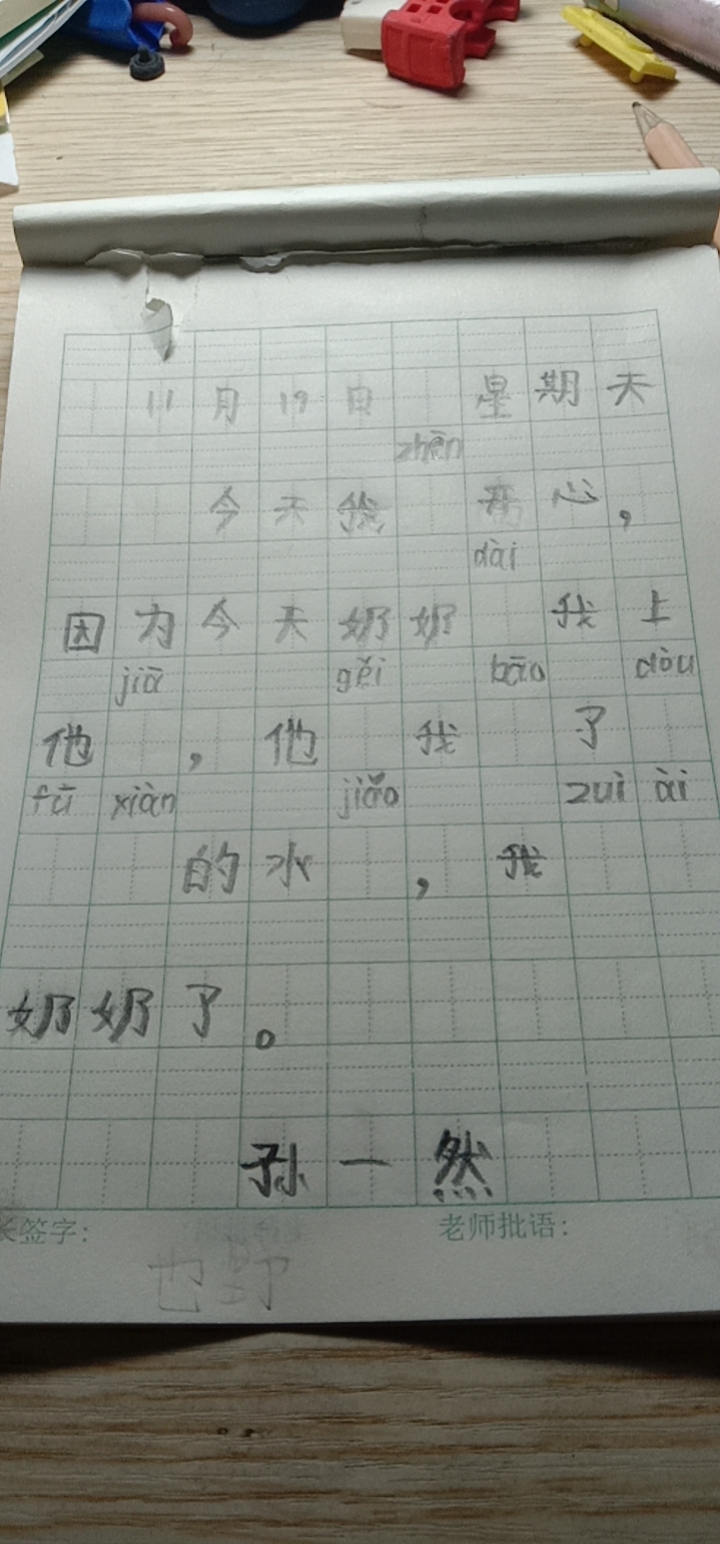 11月19日 星期天
zhēn
今天我 开心，
dài
因为今天奶奶 我上
jiā gěi bāo dòu
他 ，他 我 了
fǔ xiàn jiǎo zuì ài
的水 ，我
奶奶了。
孙一然
长签字： 老师批语：
也野